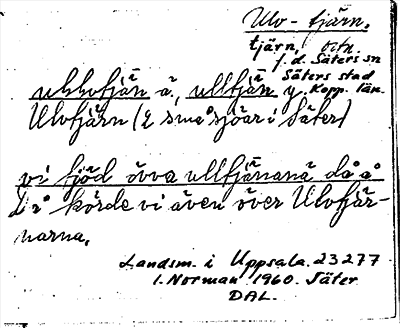 Ulv-tjärn,
tjärn, ortn.
f.d. Säters sn
Säters stad
Kopp. län.
ullfjän y.
Ulvtjärn (2 små sjöar i Säter)
vi då å
Då körde vi även över Ulvtjär-
narna.
Landsm. i Uppsala 23277
I. Norman 1960. Säter
DAL.